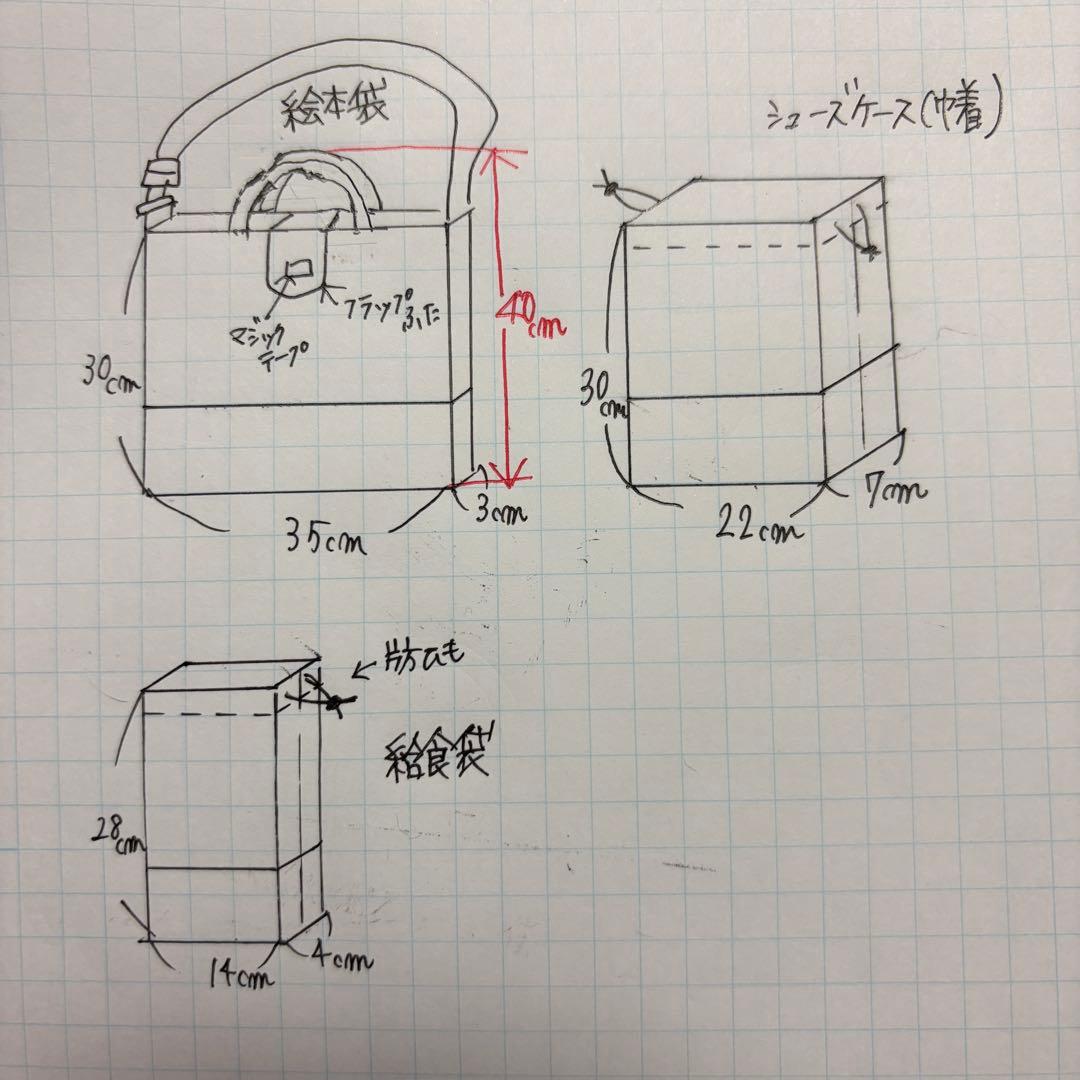 絵本袋
マジック
テープ
フラップふた
30cm
40cm
35cm
3cm
シューズケース(巾着)
30cm
22cm
7cm
片方ひも
給食袋
28cm
14cm
4cm